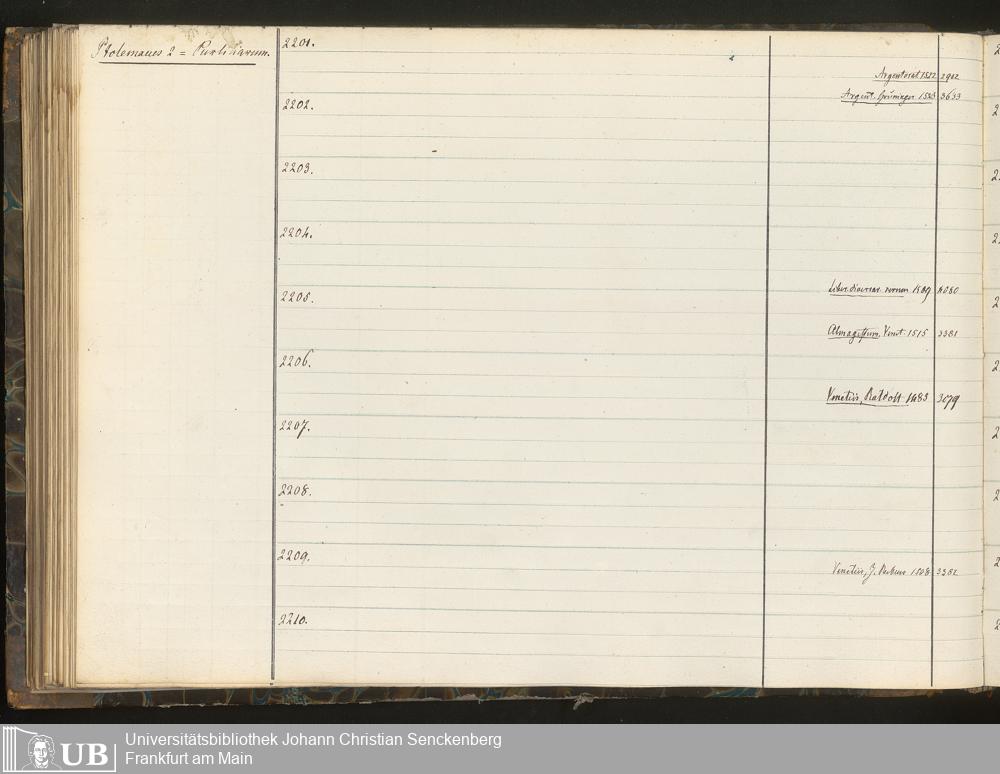 Ptolemaeus 2 = Purliliarum.
2201.
Argentorat 1512 2902
Argent. Grüninger 1523 3633
2202.
2203.
2204.
Liber diversar. rerum 1509 4080
2205.
Almagestum, Venet. 1515 3381
2206.
Venetiis, Ratdolt 1483 3079
2207.
2208.
2209.
Venetiis, J. 1508 3382
2210.
UB
Universitätsbibliothek Johann Christian Senckenberg
Frankfurt am Main